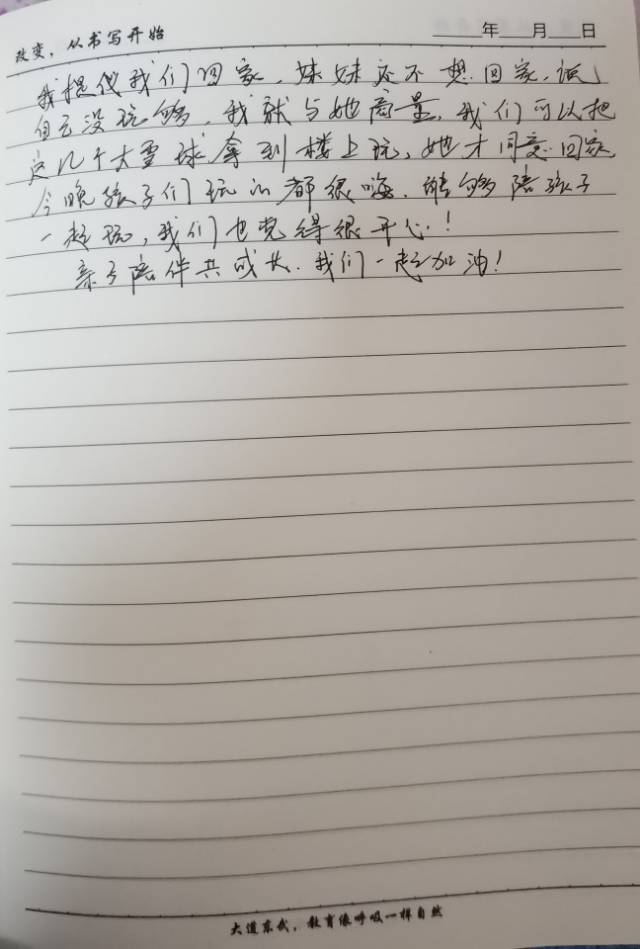 改变，从书写开始
年 月 日
我提议我们回家，妹妹还不想回家，说
自己没玩够，我就与她商量，我们可以把
这几个大雪球拿到楼上玩，她才同意回家
今晚孩子们玩的都很嗨，能够陪孩子
一起玩，我们也觉得很开心！
亲子陪伴共成长，我们一起加油！
大道东成，教育像呼吸一样自然